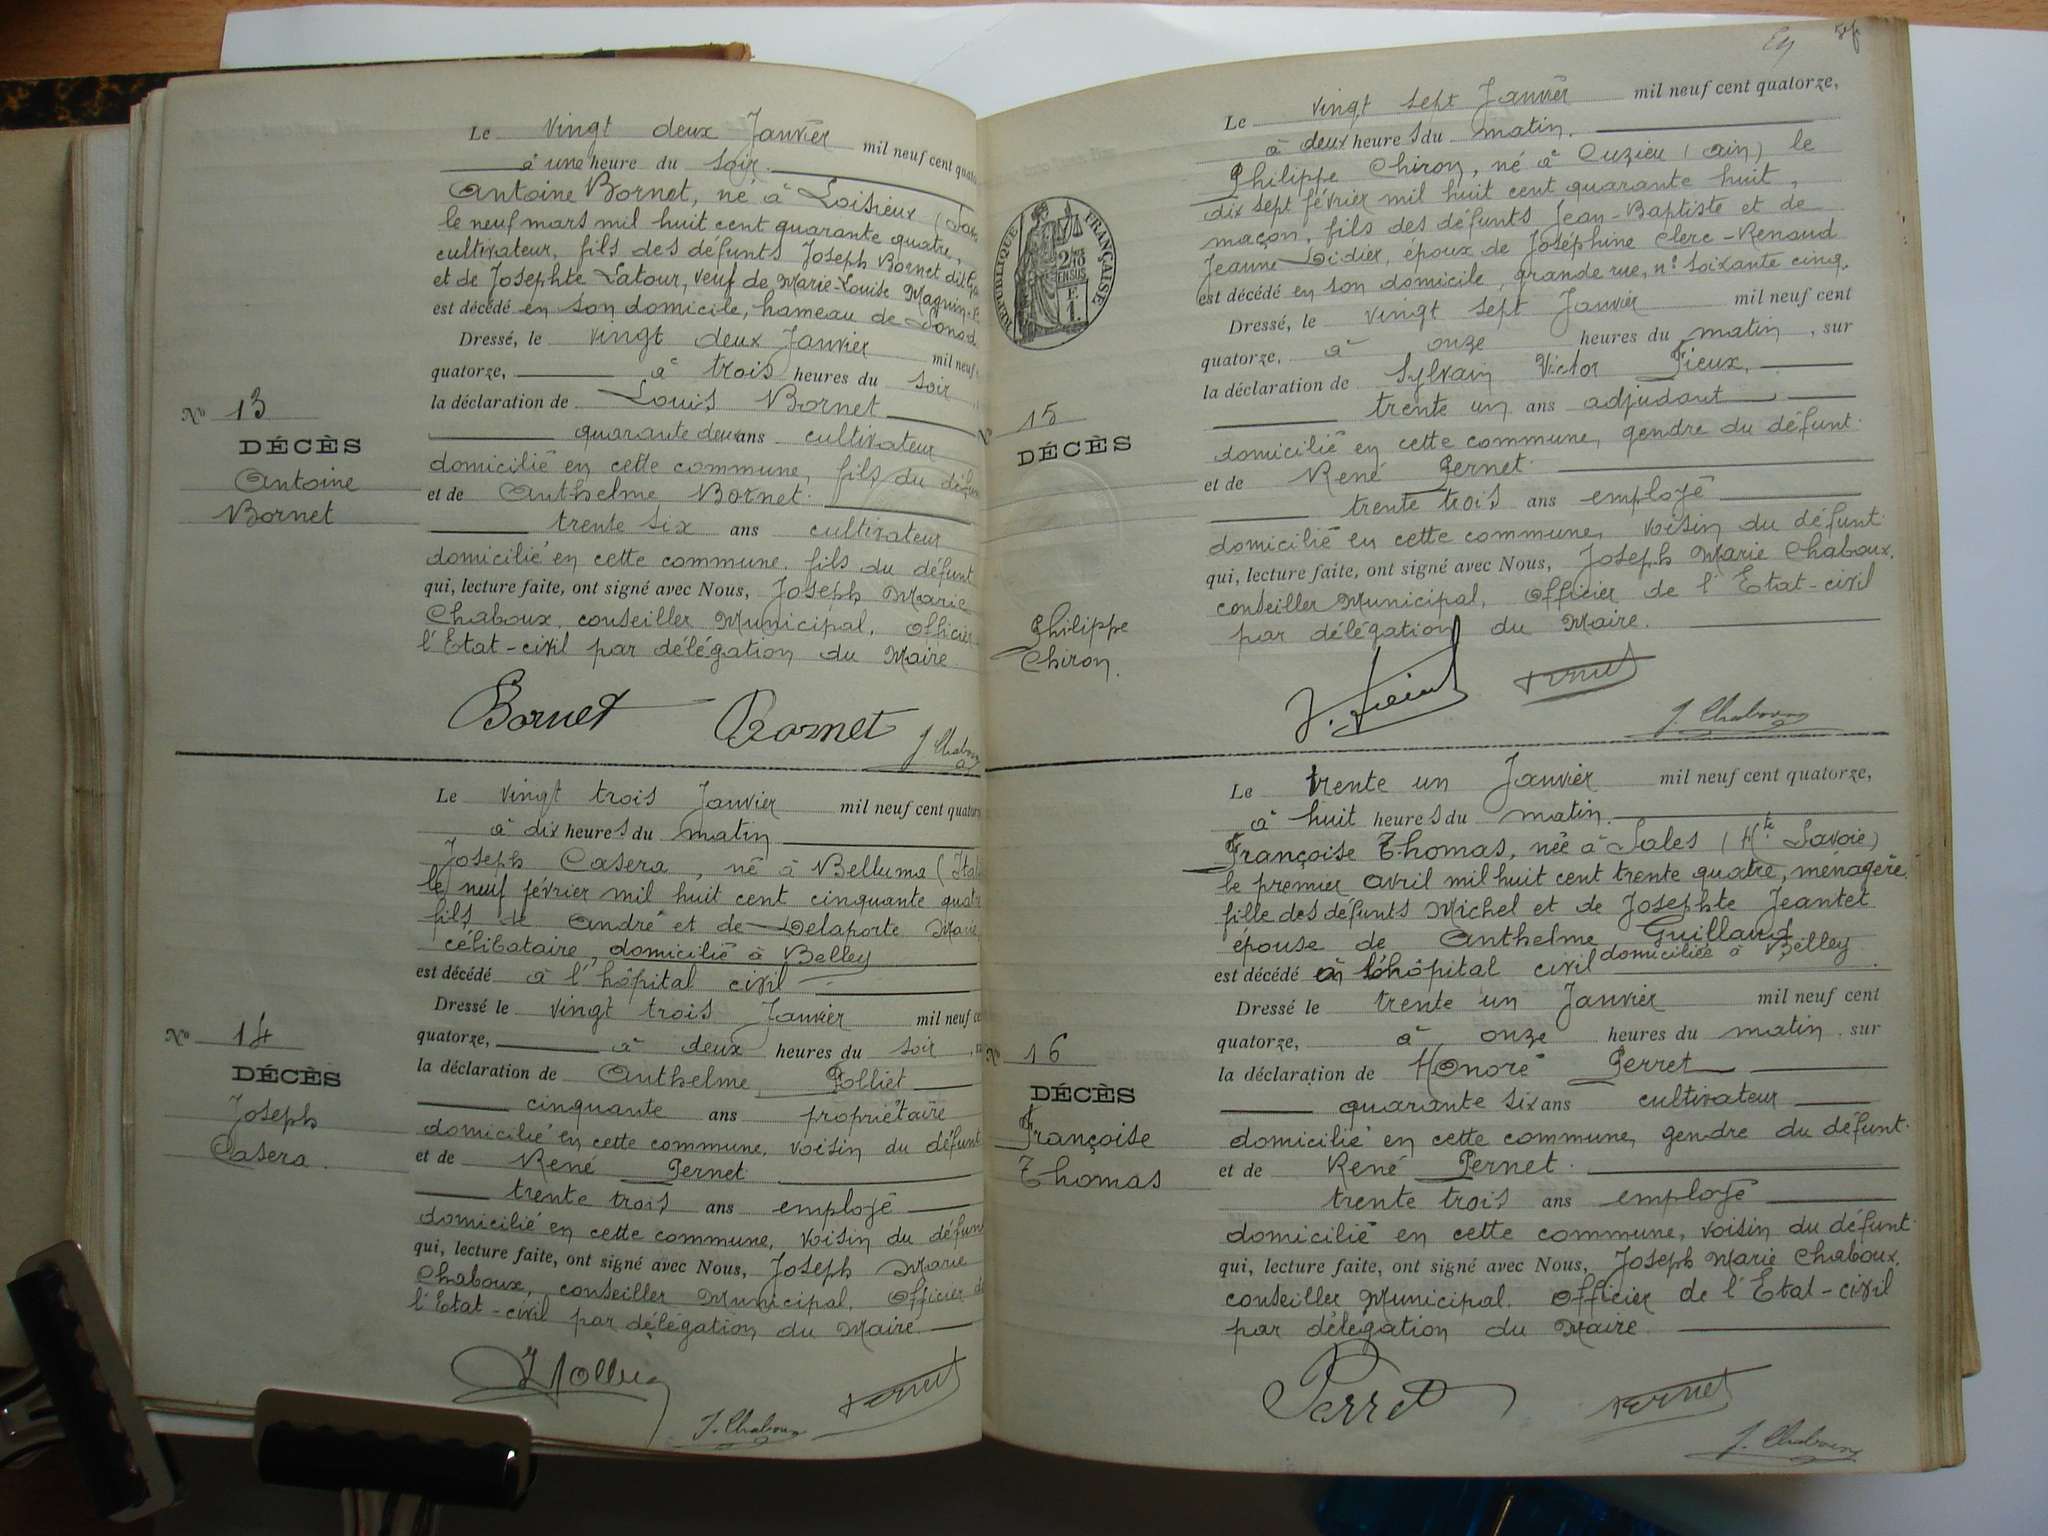 Le vingt deux Janvier mil neuf cent
à une heure du soir.
Antoine Bornet, né à Loisieux
le neuf mars mil huit cent quarante quatre,
cultivateur, fils des défunts Joseph Bornet dit
et de Josephte Latour, veuf de Marie-Louise Magnin
est décédé en son domicile, hameau de
Dressé, le vingt deux Janvier mil neuf
quatorze, à trois heures du soir
la déclaration de Louis Bornet
quarante deux ans cultivateur
domicilié en cette commune, fils du
et de Anthelme Bornet.
trente six ans cultivateur
domicilié en cette commune. fils du défunt
qui, lecture faite, ont signé avec Nous, Joseph Marie
Chaboux, conseiller Municipal, Officier
l'Etat-civil par délégation du Maire
No 13
DÉCÈS
Antoine
Bornet
Bornet Bornet J. Chaboux
Le vingt trois Janvier mil neuf cent
à dix heures du matin
Joseph Casera, né à Belluma
le neuf février mil huit cent cinquante
fils de André et de Delaporte Marie
célibataire, domicilié à Belley
est décédé à l'hôpital civil
Dressé le vingt trois Janvier mil neuf
quatorze, à deux heures du soir
la déclaration de Anthelme Polliet
cinquante ans propriétaire
domicilié en cette commune, voisin du défunt
et de René Pernet
trente trois ans employé
domicilié en cette commune, voisin du
qui, lecture faite, ont signé avec Nous, Joseph Marie
Chaboux, conseiller Municipal, Officier de
l'Etat-civil par délégation du Maire.
No 14
DÉCÈS
Joseph
Casera.
J. Chaboux Pernet
Le vingt sept Janvier mil neuf cent quatorze,
à deux heures du matin.
Philippe Chiron, né à Cuzieu (Ain) le
dix sept février mil huit cent quarante huit,
maçon, fils des défunts Jean-Baptiste et de
Jeanne Didier, époux de Joséphine Clerc-Renaud
est décédé en son domicile, grande rue, n° soixante cinq.
Dressé, le vingt sept Janvier mil neuf cent
quatorze, à onze heures du matin, sur
la déclaration de Sylvain Victor Fieux,
trente un ans adjudant
domicilié en cette commune, gendre du défunt.
et de René Pernet.
trente trois ans employé
domicilié en cette commune, voisin du défunt.
qui, lecture faite, ont signé avec Nous, Joseph Marie Chaboux,
conseiller Municipal, Officier de l'Etat-civil
par délégation du Maire.
RÉPUBLIQUE FRANÇAISE
2/10
EN SUS
F.
1.
15
DÉCÈS
Philippe
Chiron.
Pernet J. Chaboux
Le trente un Janvier mil neuf cent quatorze,
à huit heures du matin.
Françoise Thomas, née à Sales (Hte Savoie)
le premier avril mil huit cent trente quatre, ménagère,
fille des défunts Michel et de Josephte Jeantet
épouse de Anthelme Guilland
domiciliée à Belley
est décédé à l'hôpital civil
Dressé le trente un Janvier mil neuf cent
quatorze, à onze heures du matin. sur
la déclaration de Honoré Perret
quarante six ans cultivateur
domicilié en cette commune, gendre du défunt.
et de René Pernet.
trente trois ans employé
domicilié en cette commune, voisin du défunt.
qui, lecture faite, ont signé avec Nous, Joseph Marie Chaboux,
conseiller Municipal. Officier de l'Etat-civil
par délégation du Maire.
No 16
DÉCÈS
Françoise
Thomas
Perret Pernet
J. Chaboux